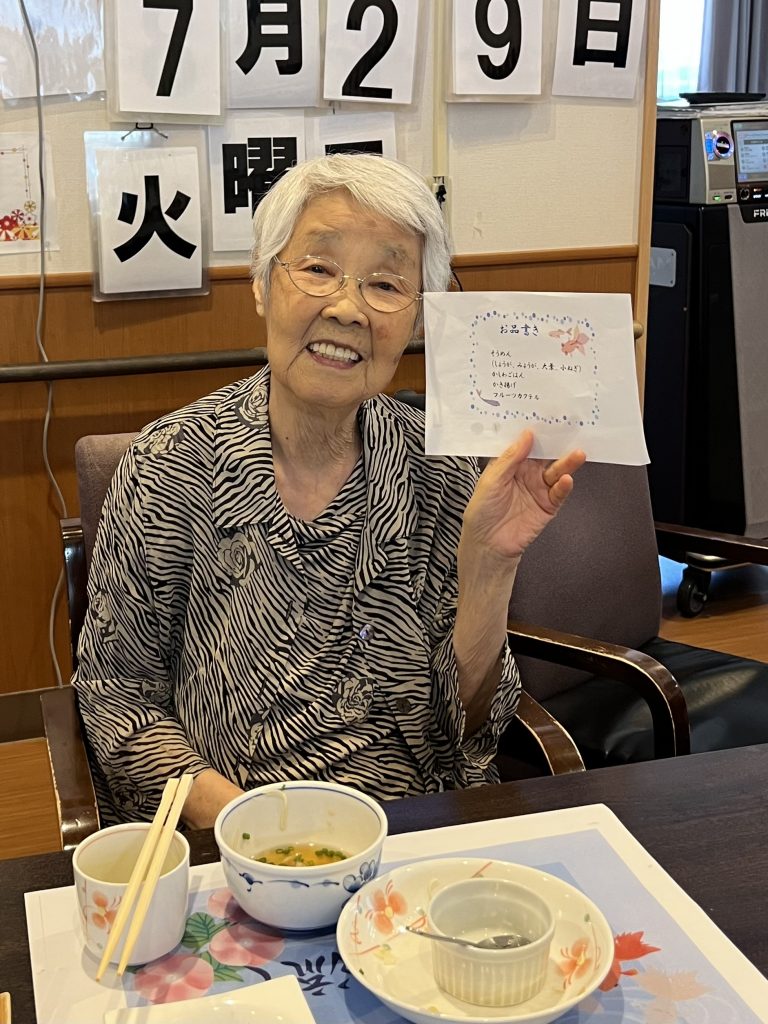 7月29日
火曜
お品書き
そうめん
(しょうが、みょうが、大葉、小ねぎ)
かしわごはん
かき揚げ
フルーツカクテル
流し